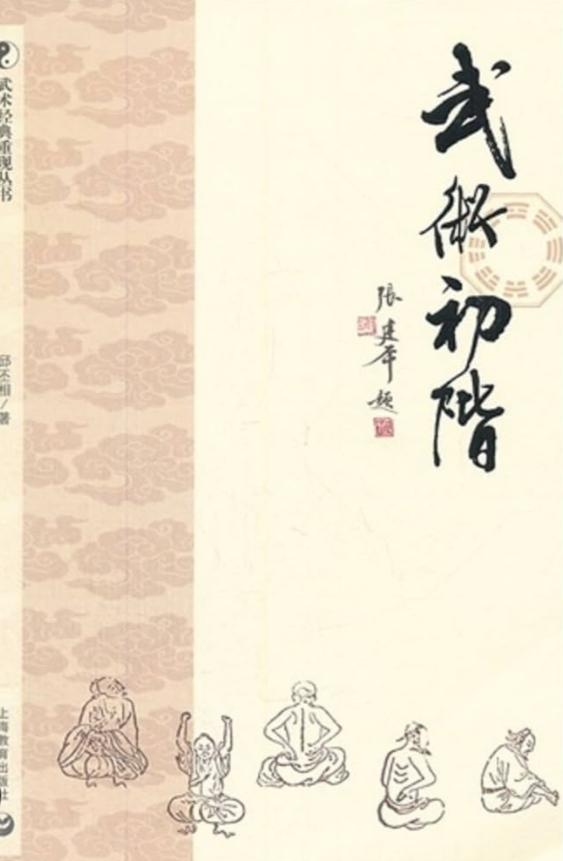 武術初階
張建平題
武术经典重现丛书
邱丕相/著
上海教育出版社